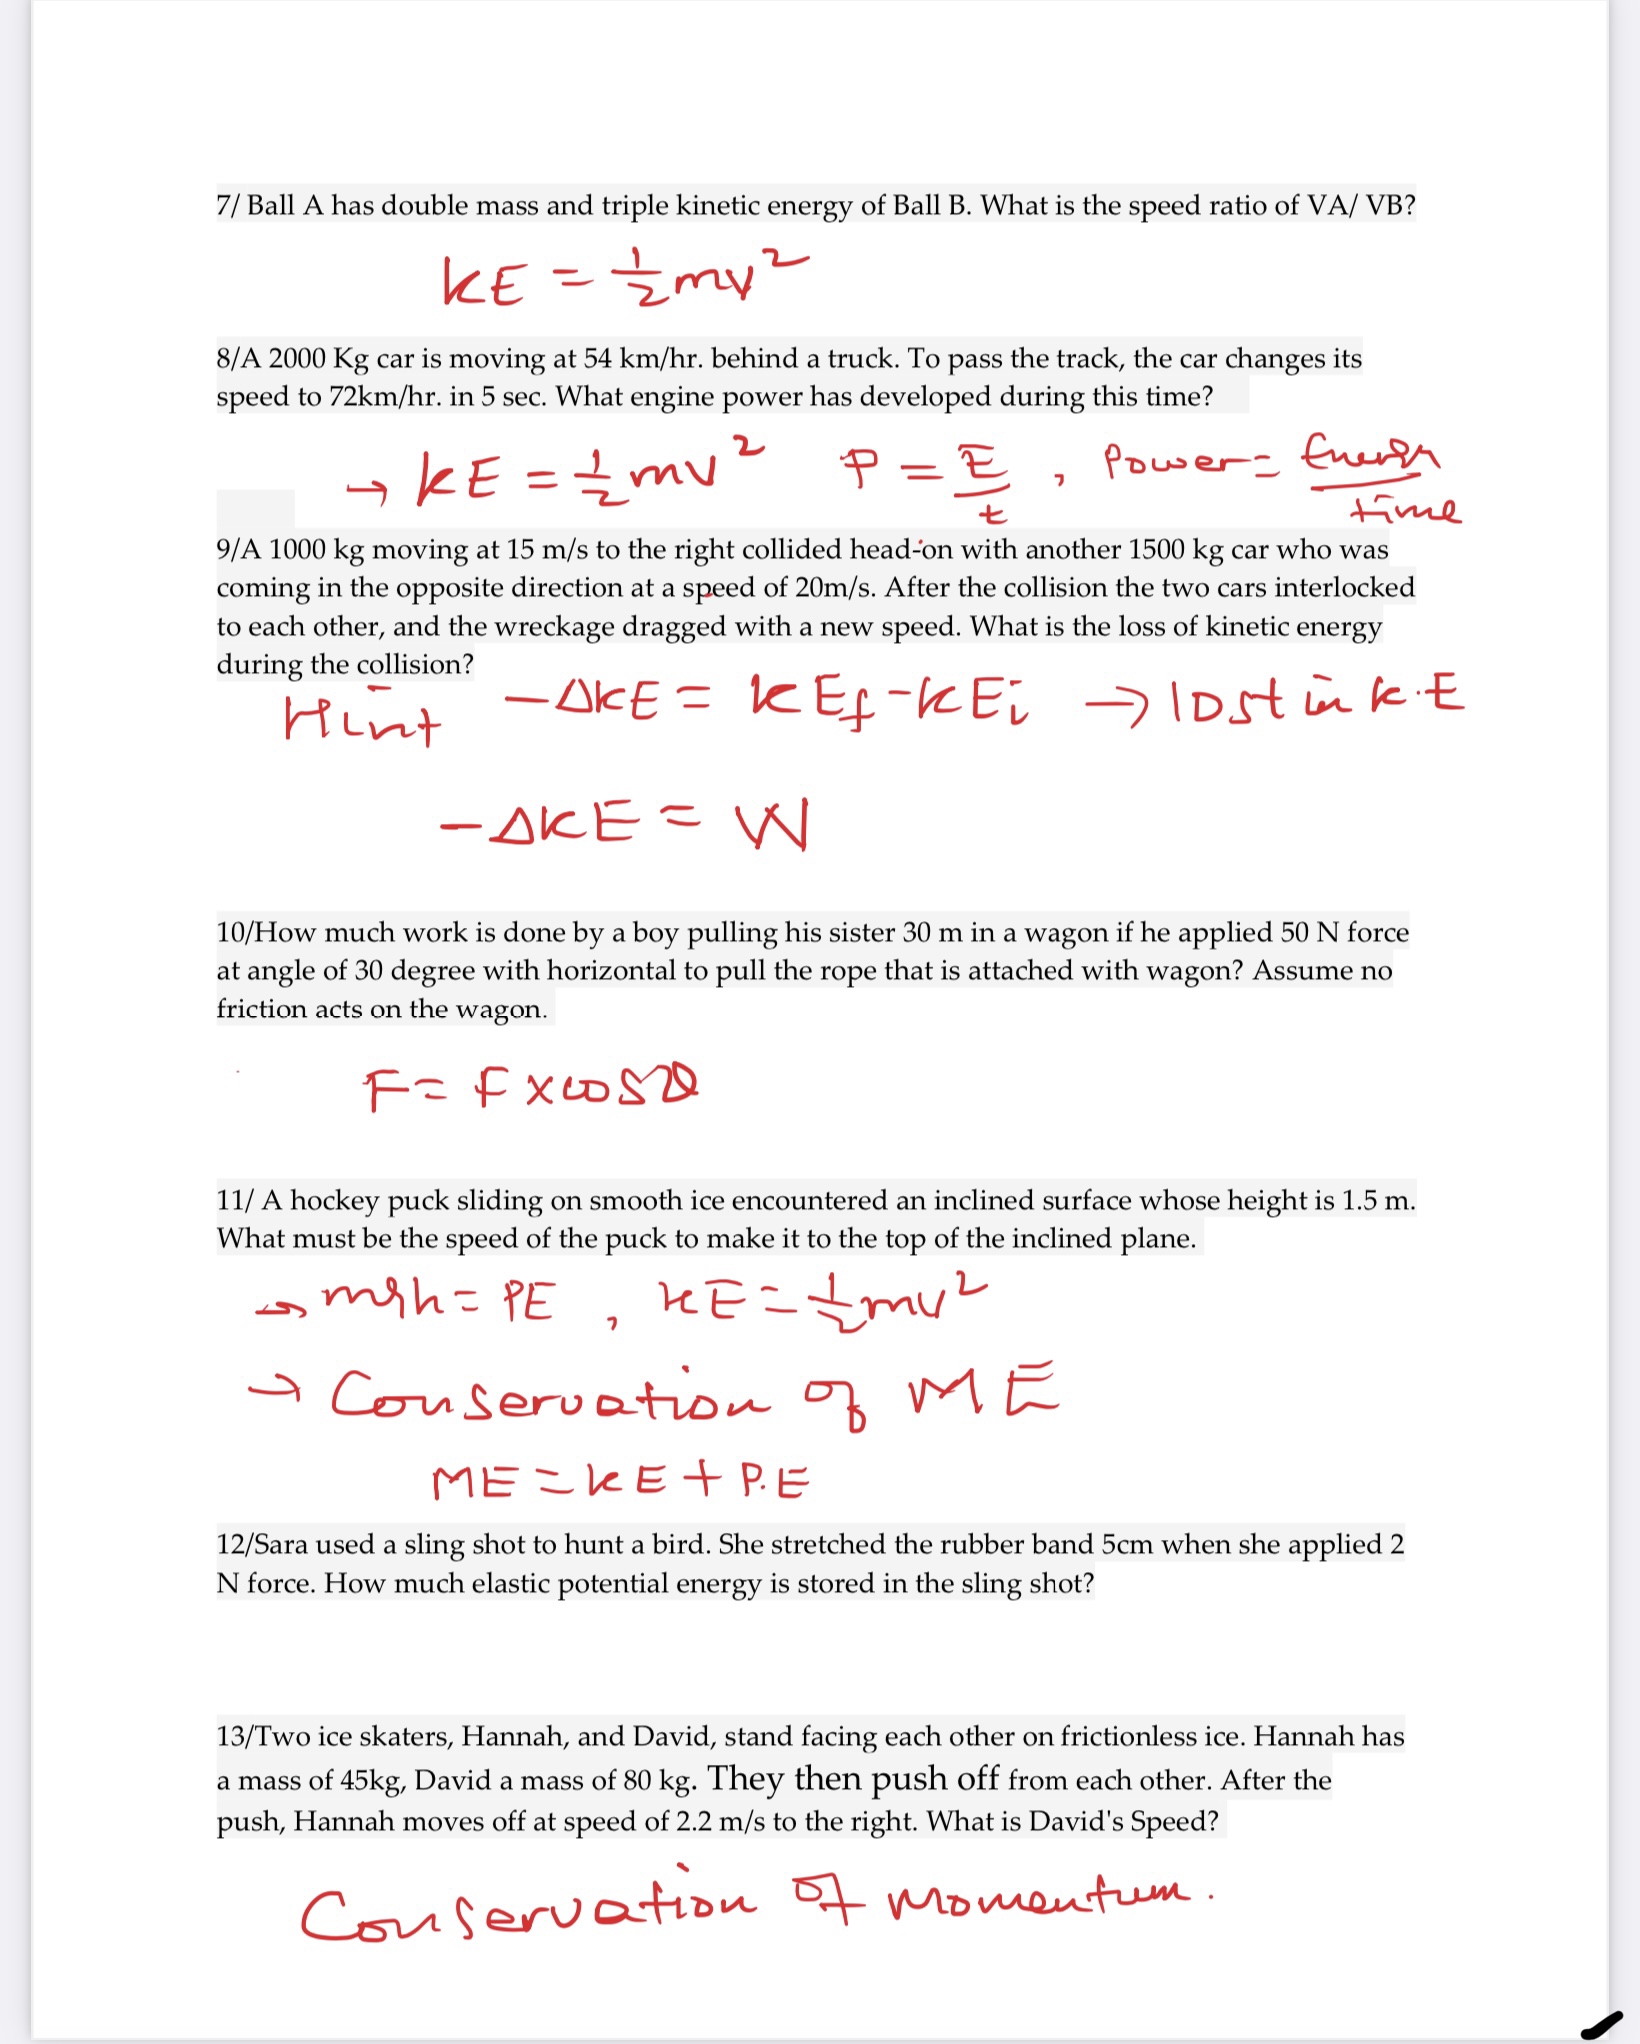 7/ Ball A has double mass and triple kinetic energy of Ball B. What is the speed ratio of VA/ VB?
KE = 1/2 mv²
8/A 2000 Kg car is moving at 54 km/hr. behind a truck. To pass the track, the car changes its
speed to 72km/hr. in 5 sec. What engine power has developed during this time?
→ KE = 1/2 mv² P = E/t , Power = Energy/time
9/A 1000 kg moving at 15 m/s to the right collided head-on with another 1500 kg car who was
coming in the opposite direction at a speed of 20m/s. After the collision the two cars interlocked
to each other, and the wreckage dragged with a new speed. What is the loss of kinetic energy
during the collision?
Hint -ΔKE = KEf - KEi → lost in K.E
-ΔKE = W
10/How much work is done by a boy pulling his sister 30 m in a wagon if he applied 50 N force
at angle of 30 degree with horizontal to pull the rope that is attached with wagon? Assume no
friction acts on the wagon.
F = F x cos θ
11/ A hockey puck sliding on smooth ice encountered an inclined surface whose height is 1.5 m.
What must be the speed of the puck to make it to the top of the inclined plane.
→ mgh = PE , KE = 1/2 mv²
→ Conservation of ME
ME = KE + P.E
12/Sara used a sling shot to hunt a bird. She stretched the rubber band 5cm when she applied 2
N force. How much elastic potential energy is stored in the sling shot?
13/Two ice skaters, Hannah, and David, stand facing each other on frictionless ice. Hannah has
a mass of 45kg, David a mass of 80 kg. They then push off from each other. After the
push, Hannah moves off at speed of 2.2 m/s to the right. What is David's Speed?
Conservation of momentum.